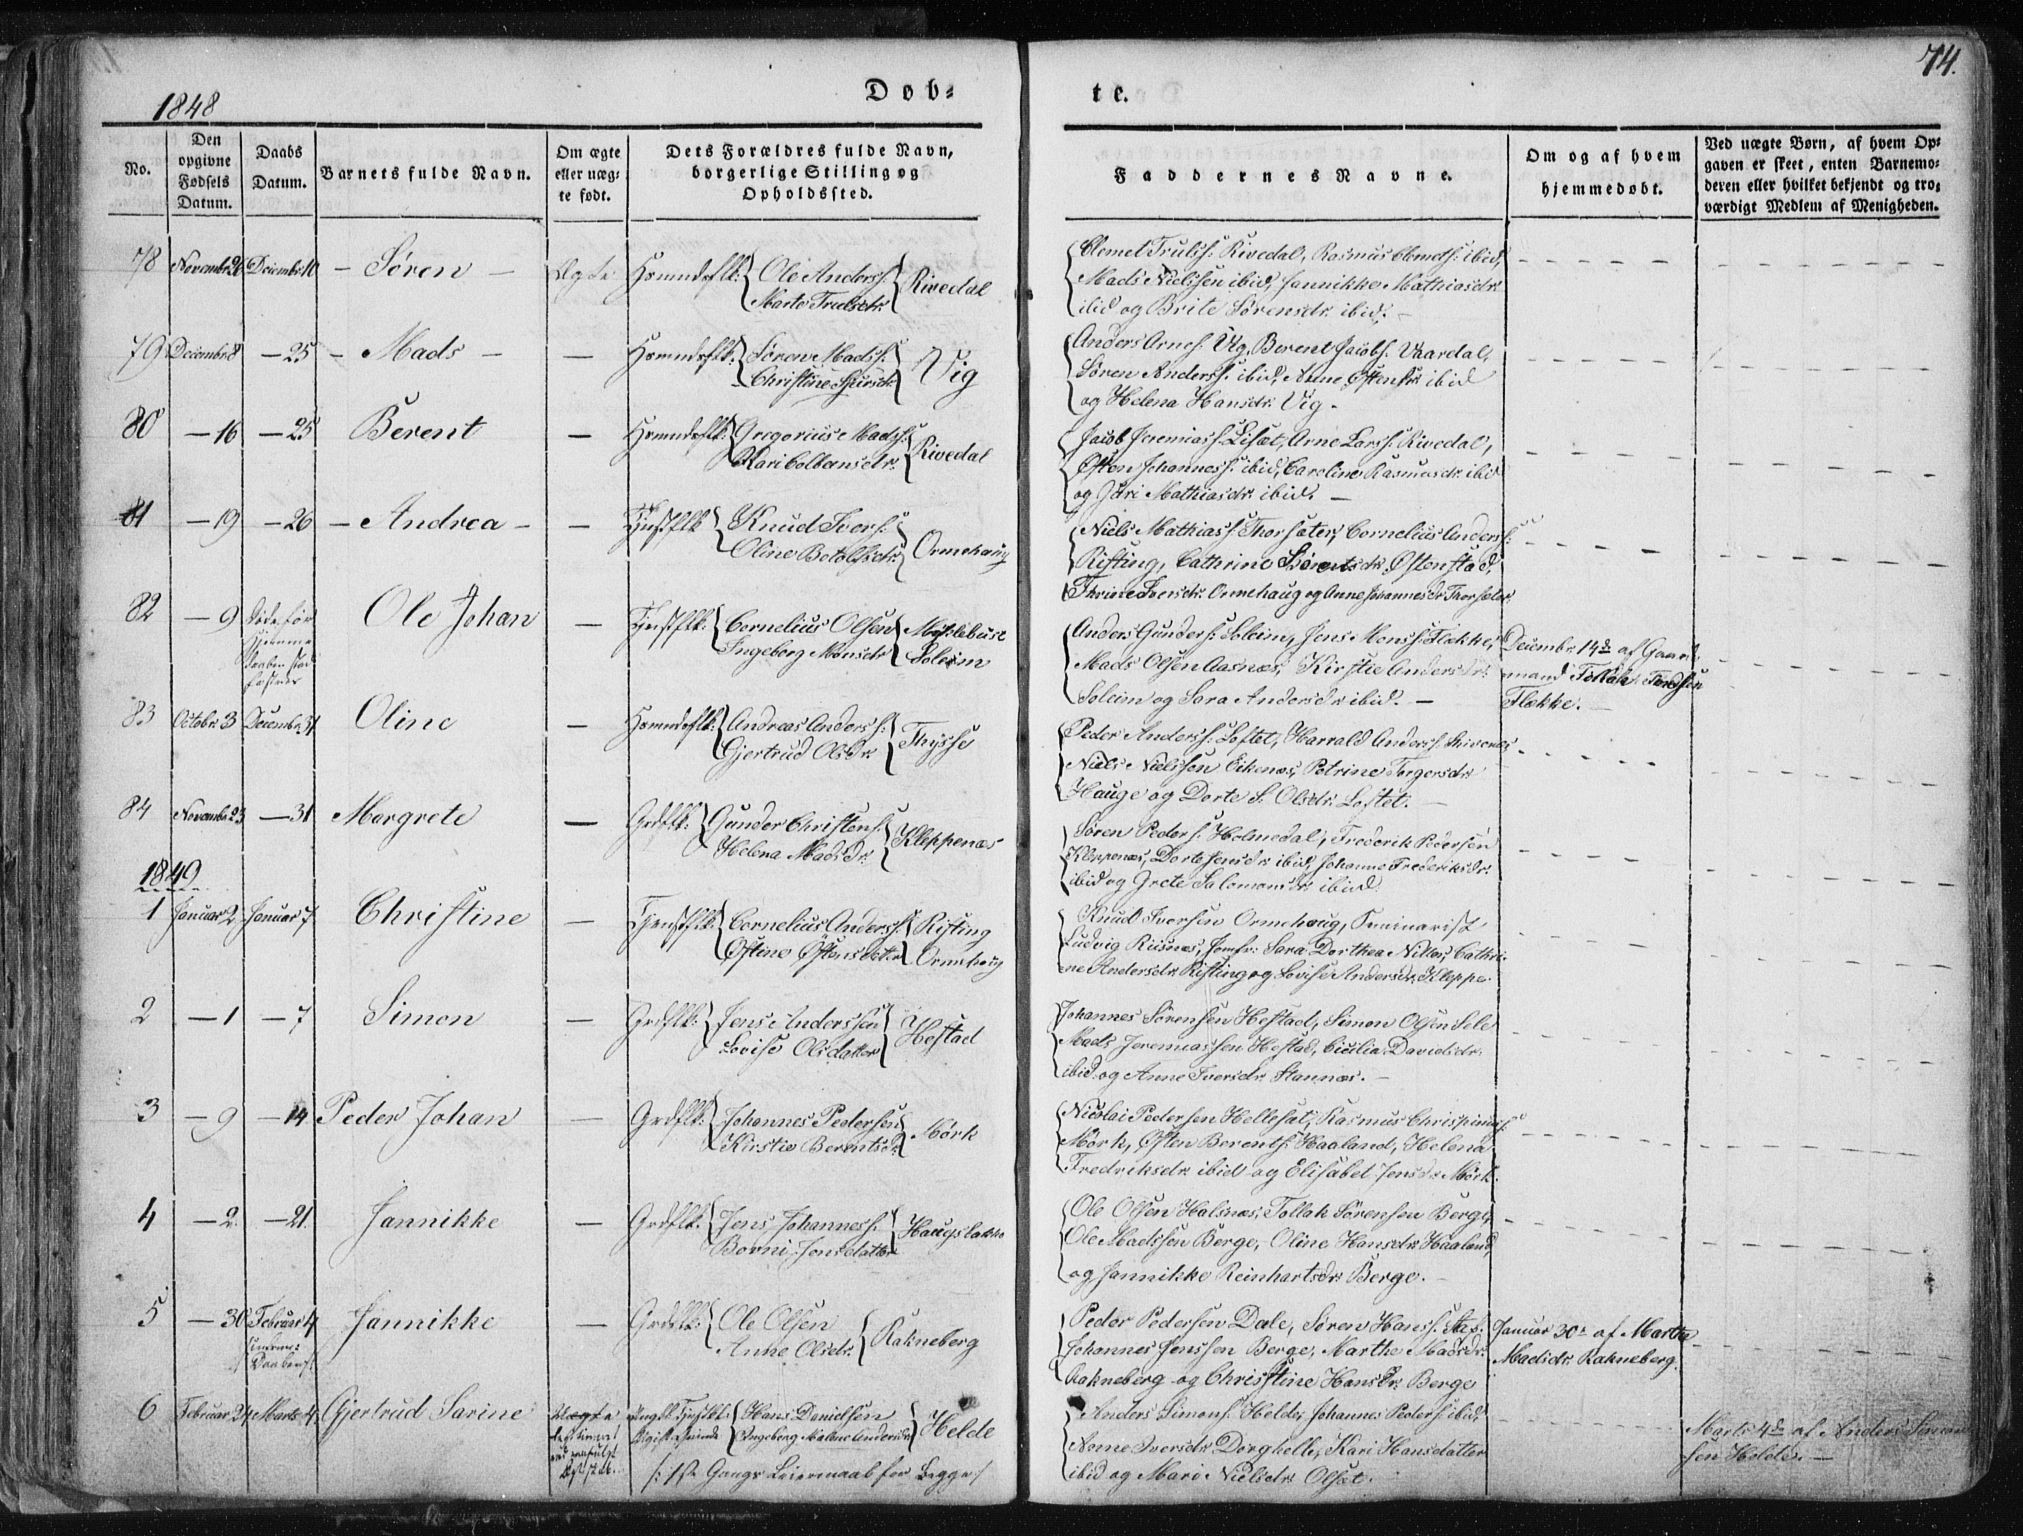 74.
1848
Døb-
te.
No.
Den opgivne Fødsels Datum.
Daabs Datum.
Barnets fulde Navn.
Om ægte eller uægte født.
Dets Forældres fulde Navn, borgerlige Stilling og Opholdssted.
Faddernes Navne.
Om og af hvem hjemmedøbt.
Ved uægte Børn, af hvem Opgaven er skeet, enten Barnemoderen eller hvilket bekjendt og troværdigt Medlem af Menigheden.
78 Novembr 26 Decembr 10 – Søren – Ægte Huusmdsflk: Ole Anders: Rivedal
Marte Trulsdr.
Clemet Truls: Rivedal, Rasmus Clemets: ibid,
Mads Nielssen ibid, Jannikke Mathiasdr.
ibid og Brite Sørensdr. ibid. –
79 Decembr 8 – 25 – Mads – –
Søren Mads: Vig
Christine
Anders Arnes: Vig, Berent Jacobs: Vaardal,
Søren Anders: ibid, Anne Østensdr. ibid
og Helena Hansdr. Vig.
80 – 16 – 25 Berent –
Gregorius Mads: Rivedal
Kari Colbensdr.
Jacob Jeremias: Liset, Arne Lars: Rivedal,
Østen Johannes: ibid, Caroline Rasmusdr. ibid
og Jari Mathiasdr. ibid. –
81 – 19 – 26 – Andrea – –
Knud Ivers: Ormehaug
Oline Botolfsdr.
Niels Mathias: Thorsæter, Cornelius Anders:
Rifting, Cathrine Sørensdr. Østenstad,
Thrine Iversdr. Ormehaug og Anne Johannesdr. Thorsæter.
82 – 9 Ole Johan – Tjenstflk: Cornelius Olsen
Ingeborg Monsdr. Soleim
Anders Gunders: Soleim, Jens Mons: Flekke,
Mads Olsen Aasnæs, Kirstie Andersdr.
Soleim og Sara Andersdr. ibid. –
Decembr 14de af Gaard-
mand
Flekke.
83 Octobr 3 Decembr 31 Oline – Huusmdsflk: Andreas Anders: Thysse
Gjertrud Olsdr.
Peder Anders: Loftet, Harrald Anders:
Niels Nielssen Eikenæs, Petrine Torgersdr.
Hauge og Dorte S. Olsdr. Loftet.
84 Novembr 23 – 31 Margrete – Grdflk: Gunder Christens: Kleppenæs
Helena Madsdr.
Søren Peders: Holmedal, Frederik Pedersen
Kleppenæs, Dorte Jensdr. ibid, Johanne Frederiksdr.
ibid og Grete Salomonsdr. ibid.
1849
1 Januar 2 Januar 7 Christine – Tjenstflk: Cornelius Anders: Rifting
Østine Østensdatter Ormehaug
Knud Iversen Ormehaug, Seminarist
Ludvig Risnæs, Jomfr: Sara Dorthea Nitter, Cathri-
ne Andersdr. Rifting og Lovise Andersdr. Kleppe.
2 – 1 – 7 Simon – Grdflk: Jens Anderssen Hestad
Lovise Olsdatter
Johannes Sørensen Hestad, Simon Olsen Sele
Mads Jeremiassen Hestad, Cicilia Davidsdr.
ibid og Anne Iversdr. Stannæs. –
3 – 9 – 14 Peder Johan – Grdflk: Johannes Pedersen Mørk
Kirstie Berentsdr.
Nicolai Pedersen Hellesæt, Rasmus
Mørk, Østen Berents: Haaland, Helena
Fredriksdr. ibid og Elisabet Jensdr. Mørk.
4 – 2 – 21 Jannikke – Grdflk: Jens Johannes: Haugsbakke
Borni Jonsdatter
Ole Olsen Halsnæs, Tollak Sørensen Berge
Ole Madssen Berge, Oline Hansdr. Haaland,
og Jannikke Reinhartsdr. Berge.
5 – 30 Februar 4 Jannikke – Grdflk: Ole Olsen Rakneberg
Anne Olsdr.
Peder Pedersen Dale, Søren Hans:
Johannes Jenssen Berge, Marthe Madsdr.
Rakneberg og Christine Hansdr. Berge
Januar 30 af Marthe
Madsdr. Rakneberg.
6 Februar 24 Marts 4 Gjertrud Sarine Uægte
Hans Danielsen Helde
Ingeborg Malene Andersdr.
/: 1ste Gangs Leiermaal for Begge:/
Anders Simons: Helde, Johannes Peders: ibid,
Anne Iversdr. Dorghelle, Kari Hansdatter
ibid og Mari Nielsdr. Olset.
Marts 4de af Anders Simon-
sen Helde. –